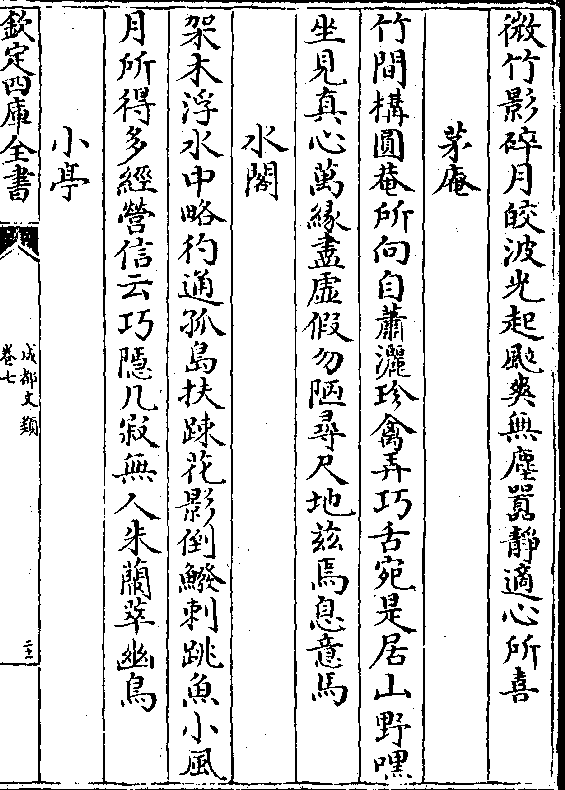 微竹影碎月皎波光起颸爽無塵囂靜適心所喜
茅庵
竹間搆圓菴所向自蕭灑珍禽弄巧舌宛是居山野嘿
坐見真心萬緣盡虛假勿陋尋尺地兹焉息意馬
水閣
架木浮水中略彴通孤島扶踈花影倒鱍剌跳魚小風
月所得多經營信云巧隠几寂無人朱蘭萃幽鳥
小亭
欽定四庫全書
成都文類
卷七